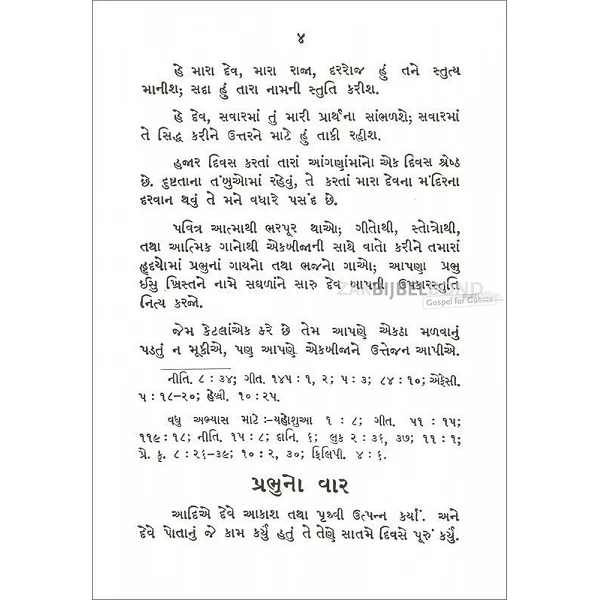 ૪
હે મારા દેવ, મારા રાજા, દરરોજ હું તને સ્તુત્ય
માનીશ; સદા હું તારા નામની સ્તુતિ કરીશ.
હે દેવ, સવારમાં તું મારી પ્રાર્થના સાંભળશે; સવારમાં
તે સિદ્ધ કરીને ઉત્તરને માટે હું તાકી રહીશ.
હજાર દિવસ કરતાં તારાં આંગણાંમાંનો એક દિવસ શ્રેષ્ઠ
છે. દુષ્ટતાના તંબુઓમાં રહેવું, તે કરતાં મારા દેવના મંદિરના
દરવાન થવું તે મને વધારે પસંદ છે.
પવિત્ર આત્માથી ભરપૂર થાઓ; ગીતોથી, સ્તોત્રોથી,
તથા આત્મિક ગાનોથી એકબીજાની સાથે વાતો કરીને તમારાં
હૃદયોમાં પ્રભુનાં ગાયનો તથા ભજનો ગાઓ; આપણા પ્રભુ
ઈસુ ખ્રિસ્તને નામે સઘળાંને સારુ દેવ બાપની ઉપકારસ્તુતિ
નિત્ય કરજો.
ZAKBIJBELBOND
Gospel for Guests
જેમ કેટલાંએક કરે છે તેમ આપણે એકઠા મળવાનું
પડતું ન મૂકીએ, પણ આપણે એકબીજાને ઉત્તેજન આપીએ.
નીતિ. ૮ : ૩૪; ગીત. ૧૪૫ : ૧, ૨; ૫ : ૩; ૮૪ : ૧૦; એફેસી.
૫ : ૧૮-૨૦; હેબ્રી. ૧૦ : ૨૫.
વધુ અભ્યાસ માટે:-યહોશુઆ ૧ : ૮; ગીત. ૫૧ : ૧૫;
૧૧૯ : ૧૮; નીતિ. ૧૫ : ૮; દાનિ. ૬; લુક ૨ : ૩૬, ૩૭; ૧૧ : ૧;
પ્રે. કૃ. ૮ : ૨૬-૩૯; ૧૦ : ૨, ૩૦; ફિલિપી. ૪ : ૬.
પ્રભુનો વાર
આદિએ દેવે આકાશ તથા પૃથ્વી ઉત્પન્ન કર્યાં. અને
દેવે પોતાનું જે કામ કર્યું હતું તે તેણે સાતમે દિવસે પૂરું કર્યું.